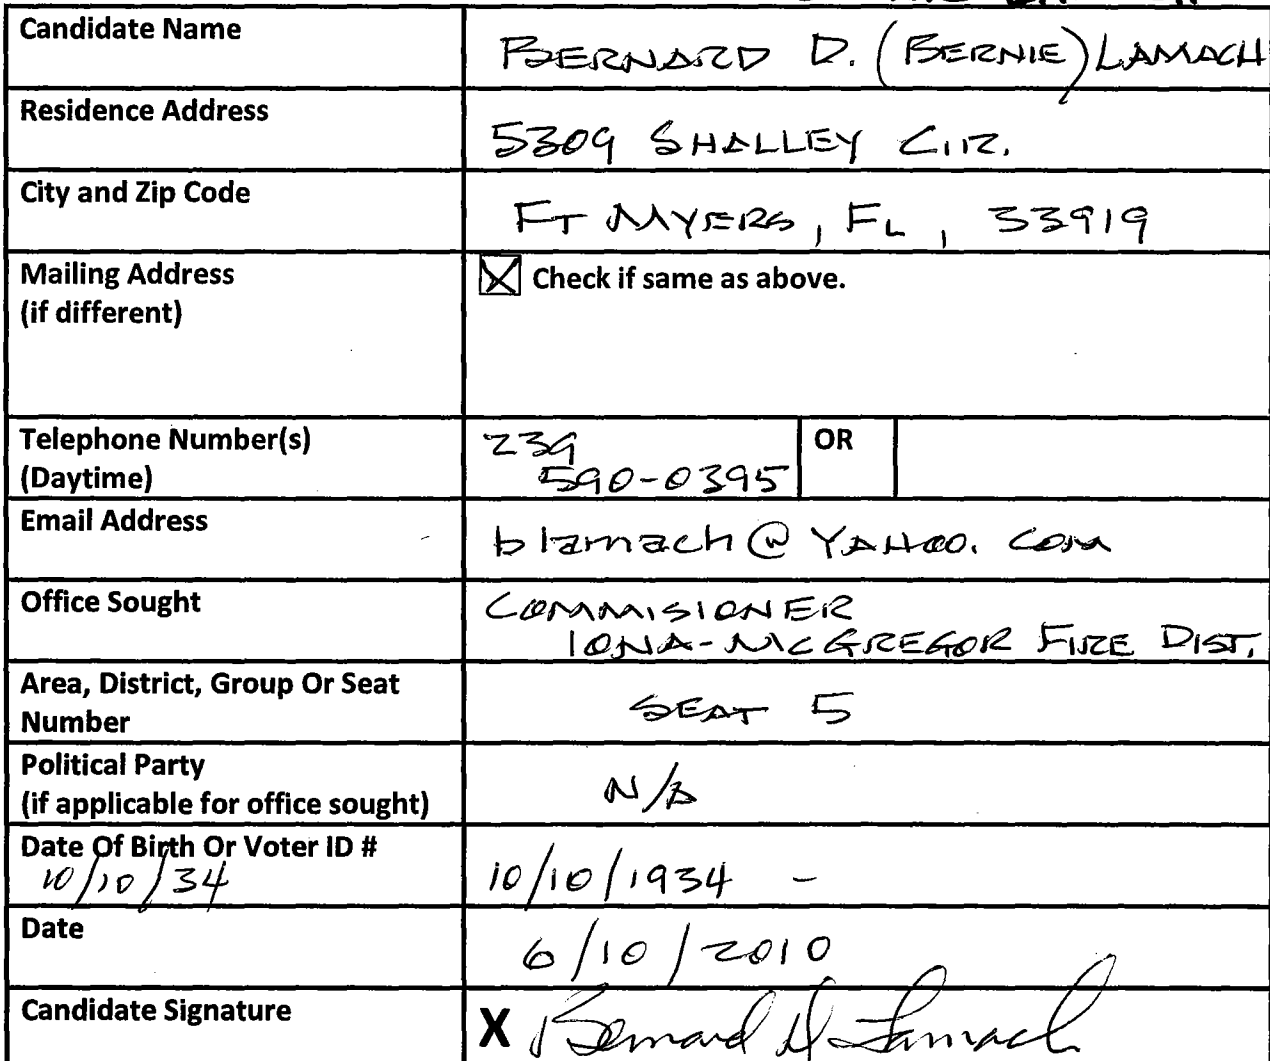 Candidate Name BERNARD D. (BERNIE) LAMACH
Residence Address 5309 SHALLEY CIR.
City and Zip Code FT MYERS, FL, 33919
Mailing Address Check if same as above.
(if different)
Telephone Number(s) 239 OR
(Daytime) 590-0395
Email Address blamach@YAHOO.COM
Office Sought COMMISIONER
IONA-MCGREGOR FIRE DIST.
Area, District, Group Or Seat
Number SEAT 5
Political Party
(if applicable for office sought) N/A
Date Of Birth Or Voter ID #
10/10/34 10/10/1934 -
Date 6/10/2010
Candidate Signature X Bernard D Lamach